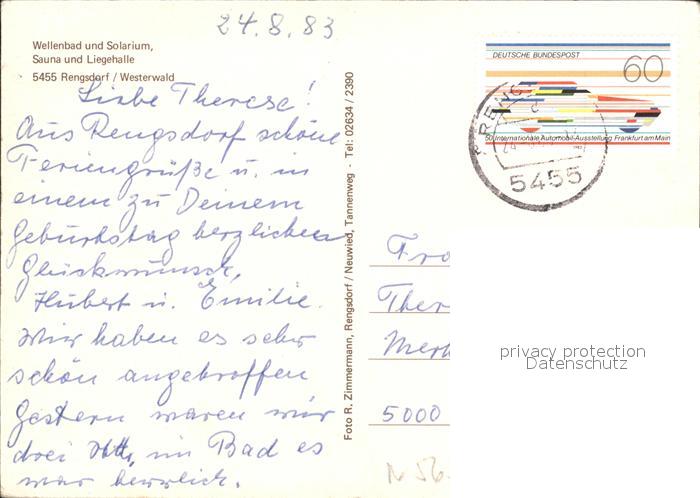 24.8.83
Wellenbad und Solarium,
Sauna und Liegehalle
5455 Rengsdorf / Westerwald
Liebe Therese!
Aus Rengsdorf schöne
Feriengrüße u. in
einem zu Deinem
Geburtstag herzlichen
Glückwunsch,
Hubert u. Emilie.
Wir haben es sehr
schön angetroffen
Gestern waren wir
drei im Bad es
war herrlich.
Foto R. Zimmermann, Rengsdorf / Neuwied, Tannenweg · Tel: 02634 / 2390
DEUTSCHE BUNDESPOST
60
50. Internationale Automobil-Ausstellung Frankfurt am Main
RENG
5455
Fra
Ther
Merk
5000
privacy protection
Datenschutz